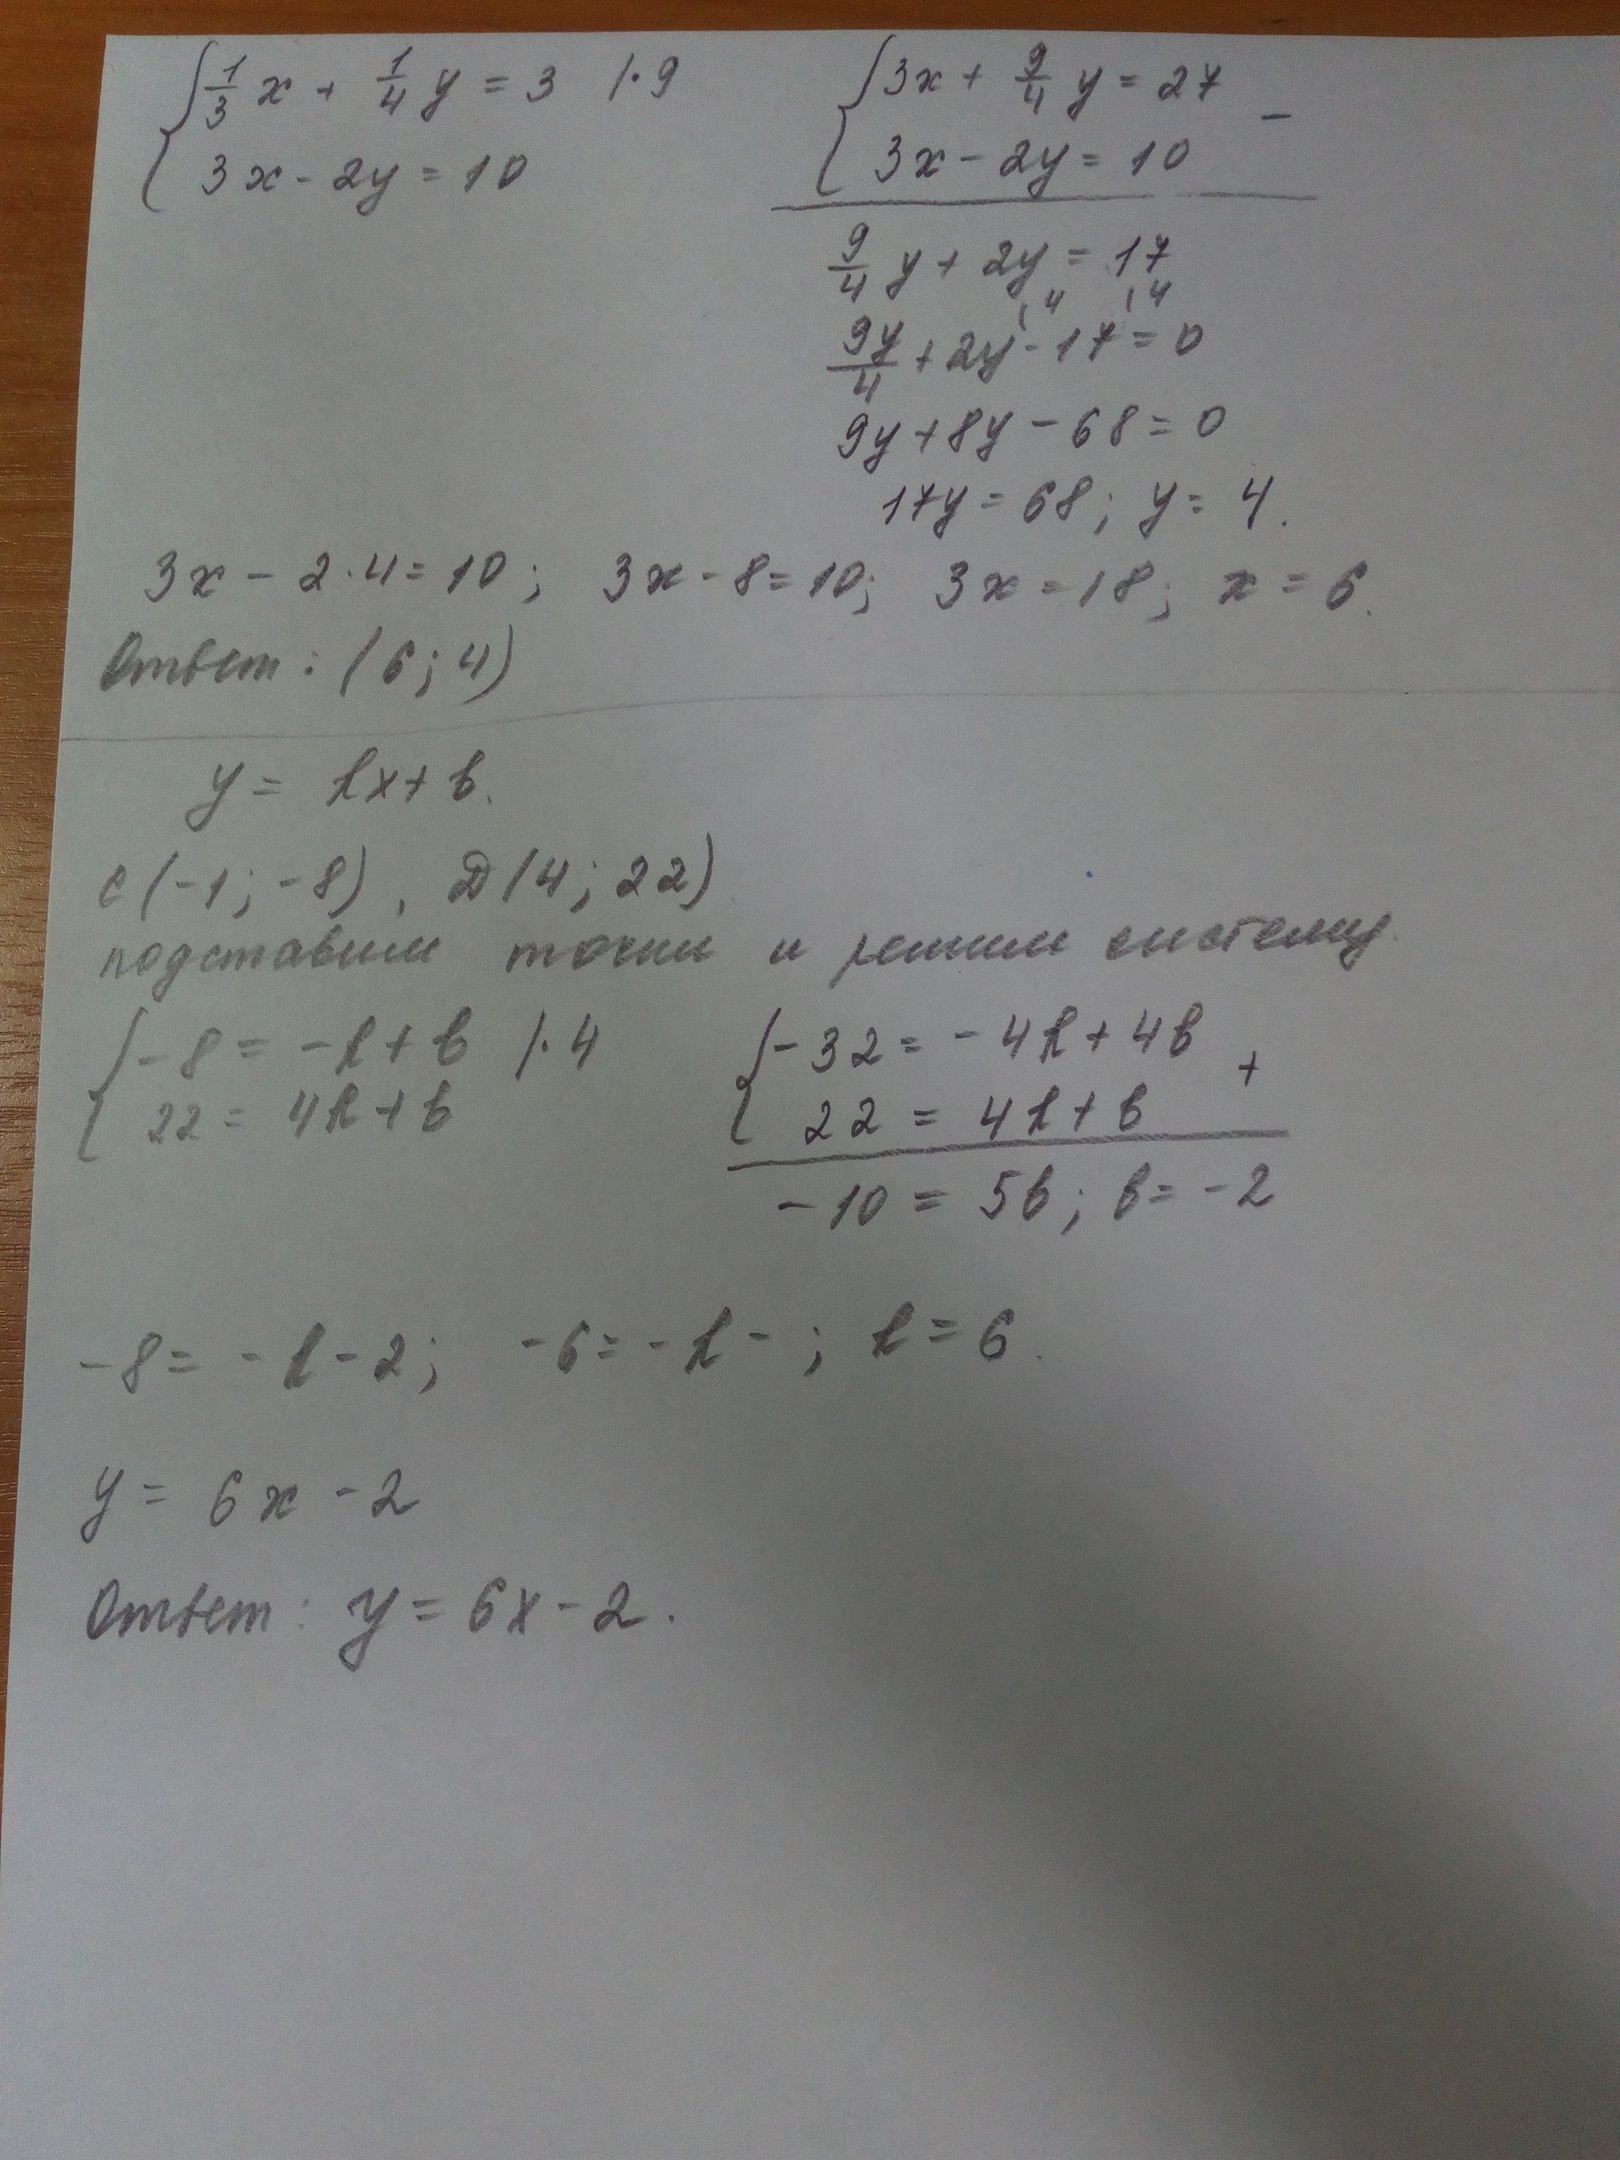 { 1/3 x + 1/4 y = 3 |·9
3x - 2y = 10
{ 3x + 9/4 y = 27 -
3x - 2y = 10
9/4 y + 2y = 17
9y/4 + 2y\4 - 17\4 = 0
9y + 8y - 68 = 0
17y = 68; y = 4.
3x - 2·4 = 10; 3x - 8 = 10; 3x = 18; x = 6.
Ответ: (6; 4)
y = kx + b.
C(-1; -8), D(4; 22)
подставим точки и решим систему
{ -8 = -k + b |·4
22 = 4k + b
{ -32 = -4k + 4b +
22 = 4k + b
-10 = 5b; b = -2
-8 = -k - 2; -6 = -k - ; k = 6.
y = 6x - 2
Ответ: y = 6x - 2.